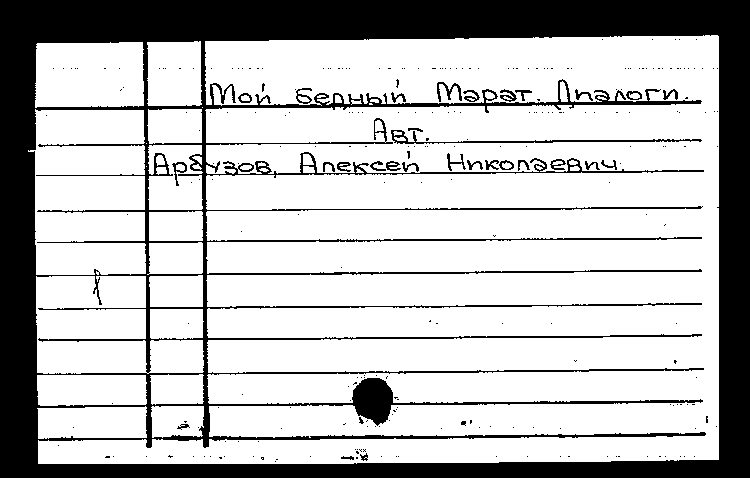 Мой бедный Марат. Диалоги.
Авт.
Арбузов, Алексей Николаевич.